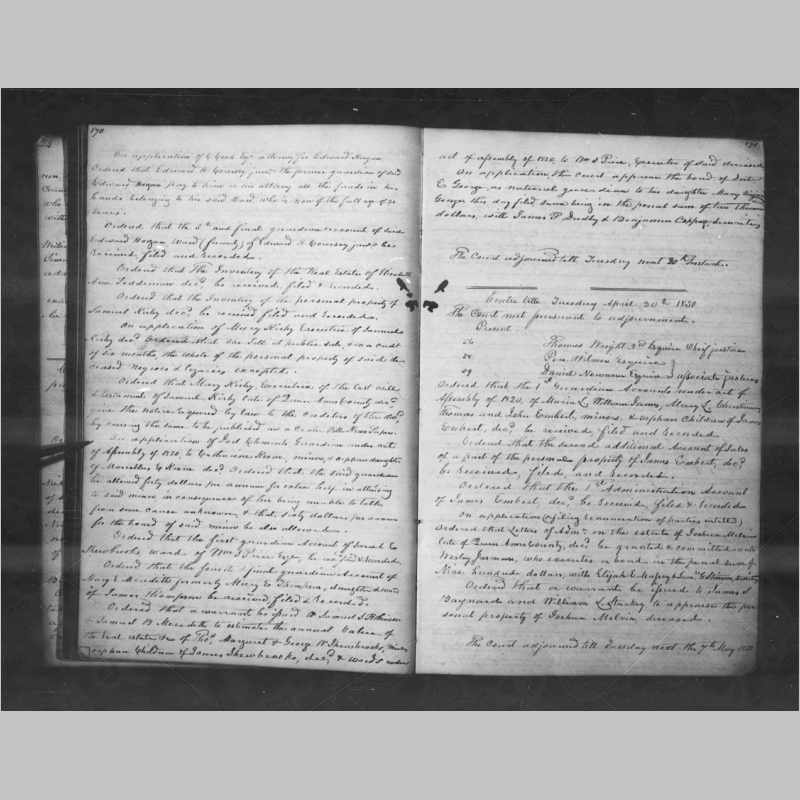 170
On application of C Cook Esqr attorney for Edward Hogan
Ordered that Edward H Coursey, junr the former guardian of said
Edward Hogan pay to him or his attorney all the funds in his
hands belonging to his said Ward, who is now of the full age of 21
years.
Ordered that the 5th and final guardian account of said
Edward Hogan Ward (formerly) of Edward H Coursey, junr be
Received, filed and recorded.
Ordered that the Inventory of the Real Estate of
Ann decd be received, filed & recorded.
Ordered that the Inventory of the personal property of
Samuel Kirby decd be received filed and Recorded.
On application of Mary Kirby Executrix of Samuel
Kirby decd Ordered that she sell at public sale, & on a credit
of six months the whole of the personal property of said de
ceased Negroes & Legacies excepted.
Ordered that Mary Kirby, Executrix of the last will
& testament of Samuel Kirby late of Queen Anns County decd
give the notice required by law to the creditors of the decd
by causing the same to be published in a Centre Ville News Paper.
On application of Guardian under act
of Assembly of 1820, to Catharine Rose, minor, & orphan daughter
of Rose decd Ordered that the said guardian
be allowed forty dollars per annum for extra help in attending
to said minor in consequence of her being unable to talk
from some cause unknown, & that sixty dollars per annum
for the board of said minor be also allowed.
Ordered that the first guardian account of Sarah E
ward of Wm Esqr, be received & recorded.
Ordered that the fourth & final guardian Account of
Mary E Meredith formerly Mary E Thompson, daughter & ward
of James Thompson be received, filed & Recorded.
Ordered that a warrant be issued to Samuel T
& Samuel B Meredith to estimate the annual Value of
the real estate &c of Thos, Margaret & George W minors
orphan Children of James decd & wards under
171
act of assembly of 1820, to Wm S Executor of said deceased
On application the court approve the bond of
E George, as natural guardian to his daughter Mary
George this day filed same being in the penal sum of two thousand
dollars, with James P & Benjamin securities
The Court adjourned till Tuesday next 30th Instant
Centre Ville Tuesday April 30th 1850
The Court met pursuant to adjournment.
Present
Thomas Wright 3d Esquire Chief justice
Wilmer Esquire
David Newnam Esquire } associate justices
Ordered that the 1st Guardian Accounts under act of
Assembly of 1820, of Maria L, William James, Mary L,
Thomas and John Embert, minors, & orphan Children of James
Embert, decd be received filed and Recorded
Ordered that the second additional Account of Sales
of a part of the personal property of James Embert, decd
be Received, filed, and recorded.
Ordered that the 1st Administration Account
of James Embert, decd be Received, filed & Recorded
On application (& filing renunciation of parties entitled)
Ordered that Letters of Admn on the estate of Joshua Melvin
late of Queen Anns County, decd be granted & committed unto
Wesley Jarman, who executes a bond in the penal sum of
Nine hundred dollars, with Elijah
Ordered that a warrant be issued to James S
Baynard and William L to appraise the per
sonal property of Joshua Melvin deceased.
The Court adjourned till Tuesday next the 7th May 1850